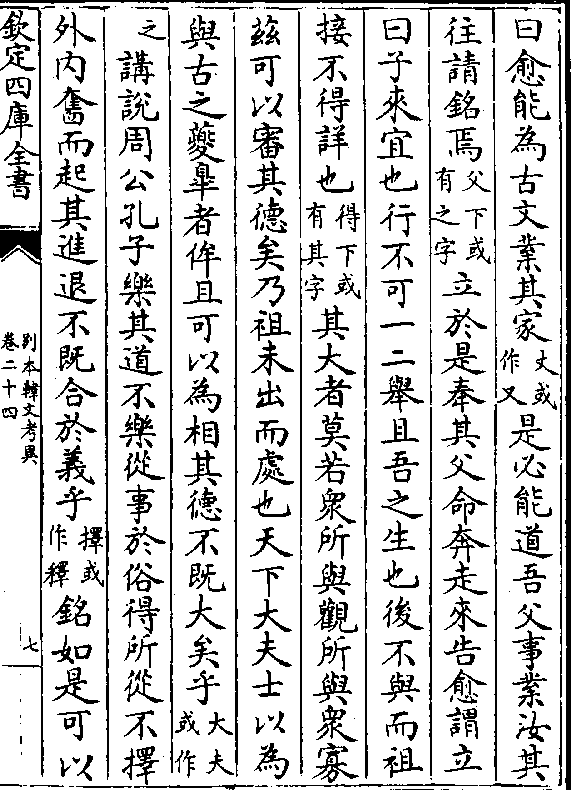 曰愈能為古文業其家丈或作又是必能道吾父事業汝其
往請銘焉父下或有之字立於是奉其父命奔走來告愈謂立
曰子來宜也行不可一二舉且吾之生也後不與而祖
接不得詳也得下或有其字其大者莫若衆所與觀所與衆寡
茲可以審其德矣乃祖未出而處也天下大夫士以為
與古之夔臯者侔且可以為相其德不既大矣乎大夫或作
之講說周公孔子樂其道不樂從事於俗得所從不擇
外内奮而起其進退不既合於義乎擇或作釋銘如是可以
欽定四庫全書
别本韓文考異
卷二十四
七